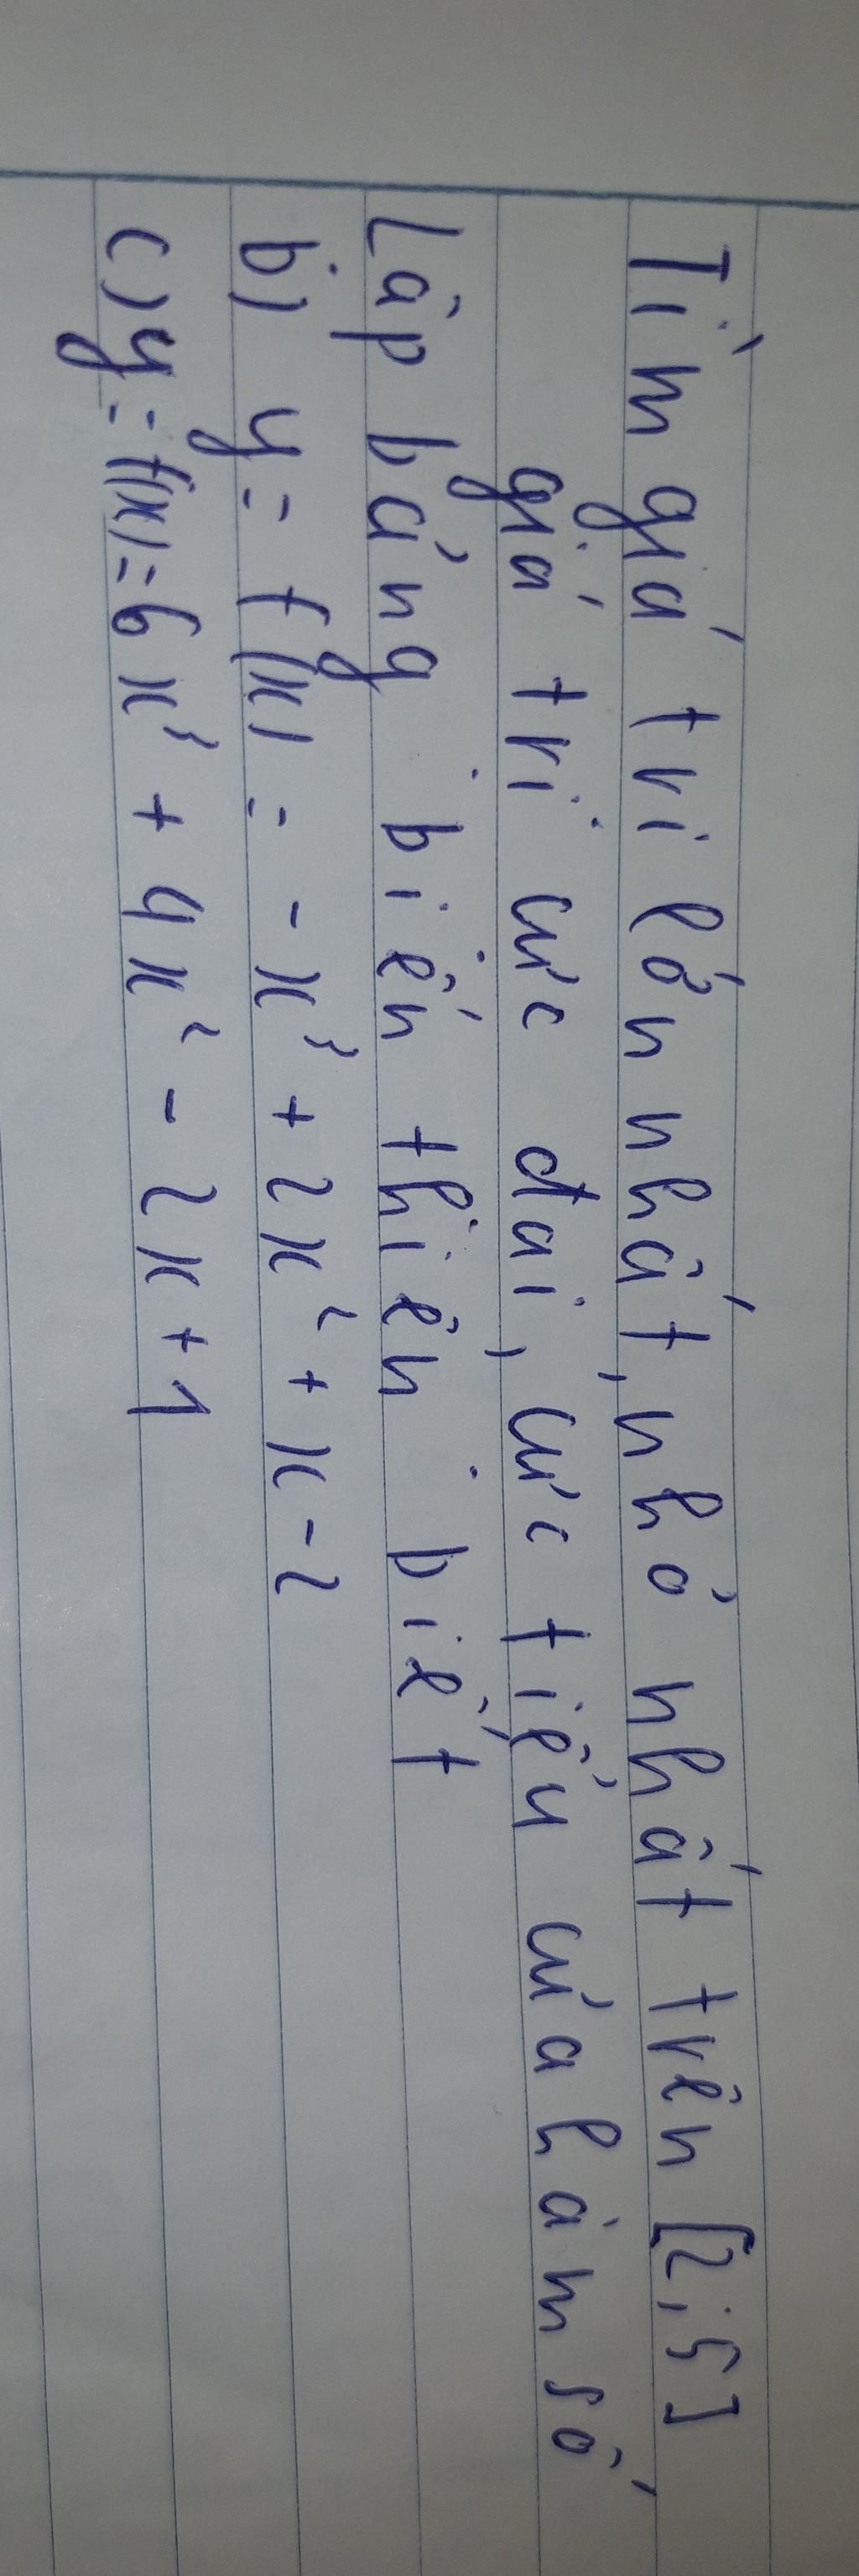 Tìm giá trị lớn nhất, nhỏ nhất trên [2; 5]
giá trị cực đại, cực tiểu của hàm số
Lập bảng biến thiên biết
b) y = f(x) = - x³ + 2x² + x - 2
c) y = f(x) = 6x³ + 4x² - 2x + 1